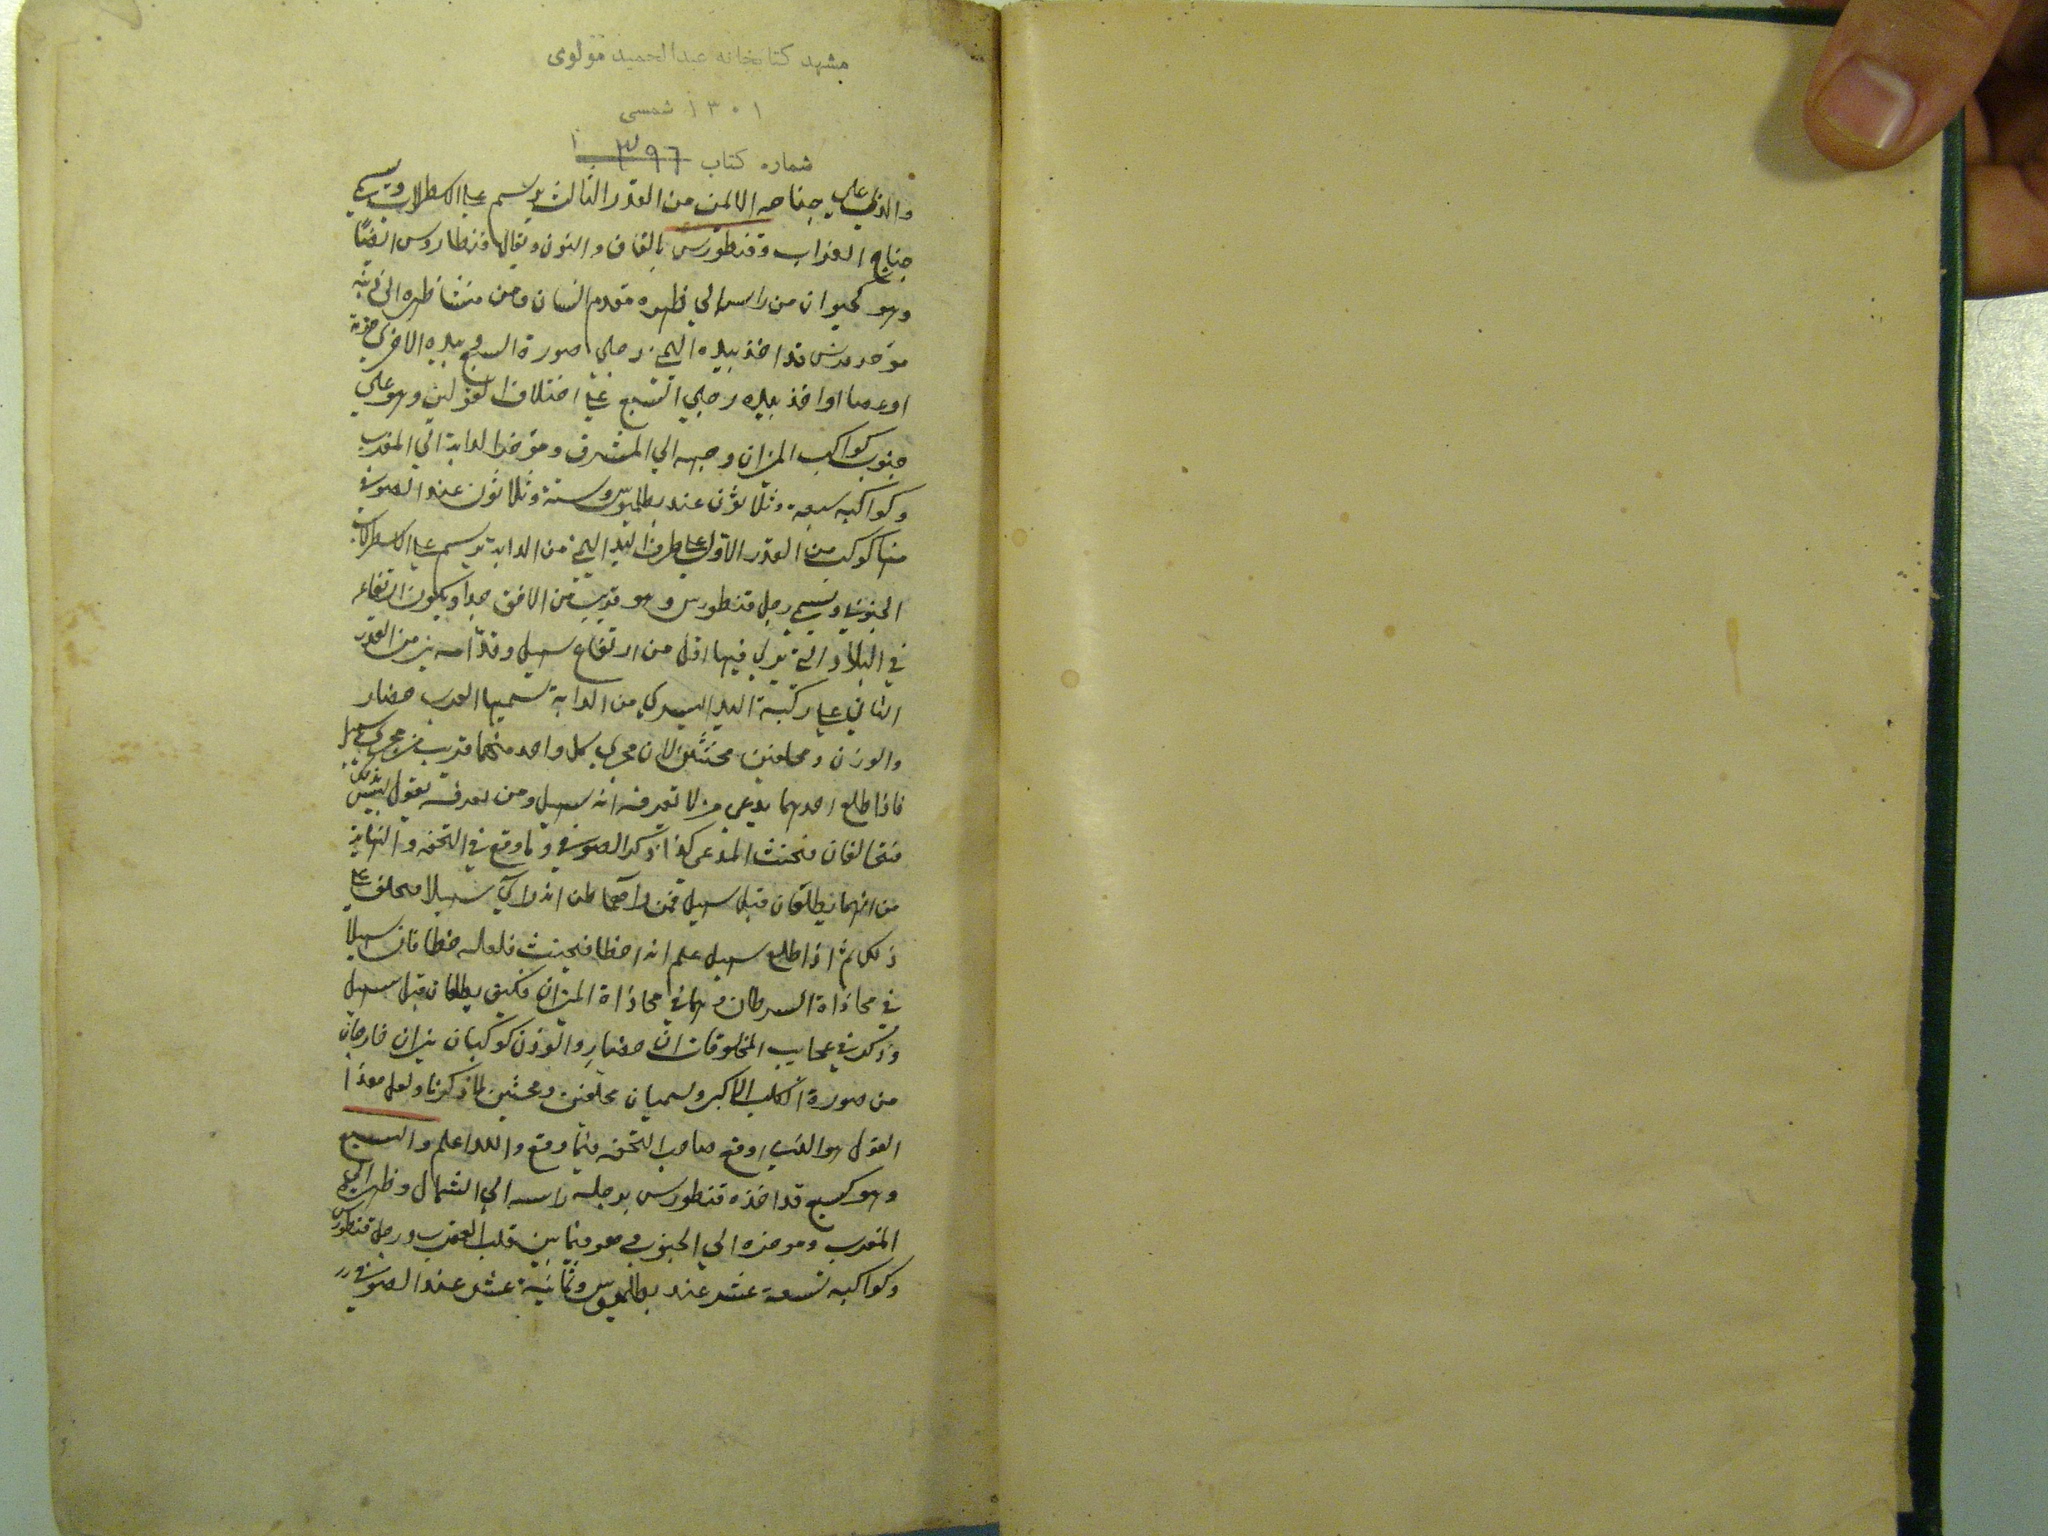 مشهد کتابخانه عبدالحمید مولوی
۱۳۰۱ شمسی
شماره کتاب ۳۹۶
والذي علي جناحه الايمن من القدر الثالث يرسم علي الاسطرلاب ويسمي
جناح الغراب وقنطورس بالقاف والنون ويقال قنطاروس ايضا
وهو كحيوان من راسه الي ظهره مقدم انسان ومن منشا ظهره الي ذنبه
موخر فرس قد اخذ بيده اليمني رجلي صورة السبع وبيده الاخري
او عصا او اخذ بيده رجلي السبع علي اختلاف القولين وهو علي
جنوب كواكب الميزان وجهه الي المشرق وموخر الدابة الي المغرب
وكواكبه سبعة وثلاثون عند بطلميوس وستة وثلاثون عند الصوفي
منها كوكب من القدر الاول علي طرف اليد اليمني من الدابة يرسم علي الاسطرلاب
الجنوبي ويسمي رجل قنطورس وهو قريب من الافق جدا ويكون ارتفاعه
في البلاد التي يري فيها اقل من ارتفاع سهيل وقدامه نير من القدر
الثاني علي ركبة اليد اليسري من الدابة تسميها العرب حضار
والوزن ومحلفين محنثين لان مجري كل واحد منهما قريب من مجري سهيل
فاذا طلع احدهما يدعي من لا يعرفه انه سهيل ومن يعرفه يقول ليس
فتحالفان فيحنث المدعي كذا ذكر الصوفي وما وقع في التحفه والنهاية
من انهما يطلعان قبل سهيل فمن رآهما ظن انه راي سهيلا فحلف علي
ذلك ثم اذا طلع سهيل علم انه اخطا فيحنث فلعله خطا فان سهيلا
في محاذاة السرطان وهما في محاذاة الميزان فكيف يطلعان قبل سهيل
وذكر في عجايب المخلوقات ان حضار والوزن كوكبان نيران خارجان
من صورة الكلب الاكبر ويسميان محلفين ومحنثين لما ذكرنا ولعل هذا
القول هو الذي اوقع صاحب التحفه فيما وقع والله اعلم والسبع
وهو كسبع قد اخذه قنطورس برجليه راسه الي الشمال وظهره الي
المغرب وموخره الي الجنوب وهو فيما بين قلب العقرب ورجل قنطورس
وكواكبه تسعة عشر عند بطلميوس وثمانية عشر عند الصوفي